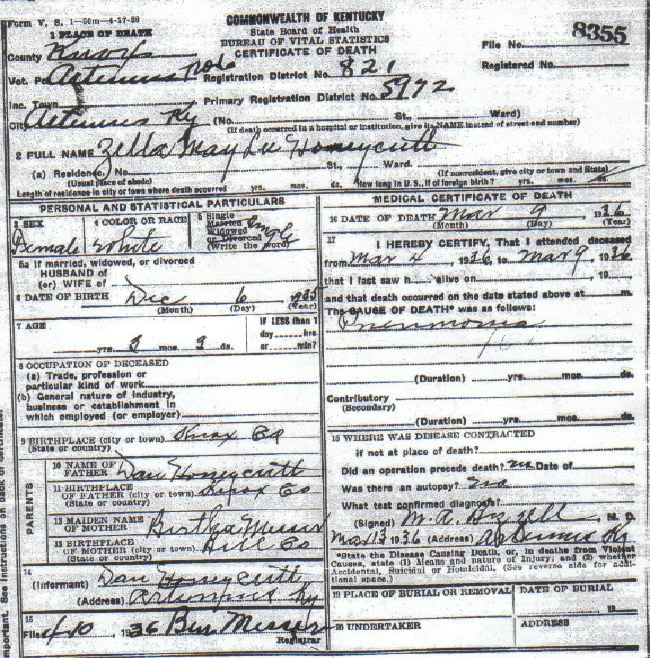 Form V. S. 1—50m—4-17-28
COMMONWEALTH OF KENTUCKY
State Board of Health
BUREAU OF VITAL STATISTICS
CERTIFICATE OF DEATH
File No. 8355
Registered No.
1 PLACE OF DEATH
County Knox
Vot. Pct. Artemus
Registration District No. 821
Inc. Town
Primary Registration District No. 5972
City Artemus Ky (No. St., Ward)
(If death occurred in a hospital or institution, give its NAME instead of street and number)
2 FULL NAME Zella May Lee Honeycutt
(a) Residence. No. St., Ward.
(Usual place of abode) (If nonresident, give city or town and State)
Length of residence in city or town where death occurred yrs. mos. ds. How long in U. S., if of foreign birth? yrs. mos. ds.
PERSONAL AND STATISTICAL PARTICULARS
3 SEX Female
4 COLOR OR RACE white
5 Single Married Widowed or Divorced (Write the word) Single
5a If married, widowed, or divorced
HUSBAND of
(or) WIFE of
6 DATE OF BIRTH Dec 6 1935
(Month) (Day) (Year)
7 AGE
yrs. 3 mos. 3 ds.
IF LESS than 1
day hrs.
or min?
8 OCCUPATION OF DECEASED
(a) Trade, profession or
particular kind of work
(b) General nature of industry,
business or establishment in
which employed (or employer)
9 BIRTHPLACE (city or town) Knox Co
(State or country)
PARENTS
10 NAME OF FATHER Dan Honeycutt
11 BIRTHPLACE OF FATHER (city or town) Knox Co
(State or country)
12 MAIDEN NAME OF MOTHER Birtha Messer
13 BIRTHPLACE OF MOTHER (city or town) Bell Co
(State or country)
14
(Informant) Dan Honeycutt
(Address) Artemus Ky
15
Filed 4-10 1936 Ben Messer
Registrar
MEDICAL CERTIFICATE OF DEATH
16 DATE OF DEATH Mar 9 1936
(Month) (Day) (Year)
17 I HEREBY CERTIFY, That I attended deceased
from Mar 4, 1936 to Mar 9, 1936
that I last saw h alive on , 19
and that death occurred on the date stated above at m.
The CAUSE OF DEATH* was as follows:
Pneumonia
(Duration) yrs. mos. ds.
Contributory
(Secondary)
(Duration) yrs. mos. ds.
18 WHERE WAS DISEASE CONTRACTED
if not at place of death?
Did an operation precede death? no Date of
Was there an autopsy? no
What test confirmed diagnosis?
(Signed) M. D.
Mar 13 1936 (Address) Artemus Ky
*State the Disease Causing Death, or, in deaths from Violent
Causes, state (1) Means and nature of Injury; and (2) whether
Accidental, Suicidal or Homicidal. (See reverse side for addi-
tional space.)
19 PLACE OF BURIAL OR REMOVAL
DATE OF BURIAL
19
20 UNDERTAKER
ADDRESS
important. See instructions on back of certificate.